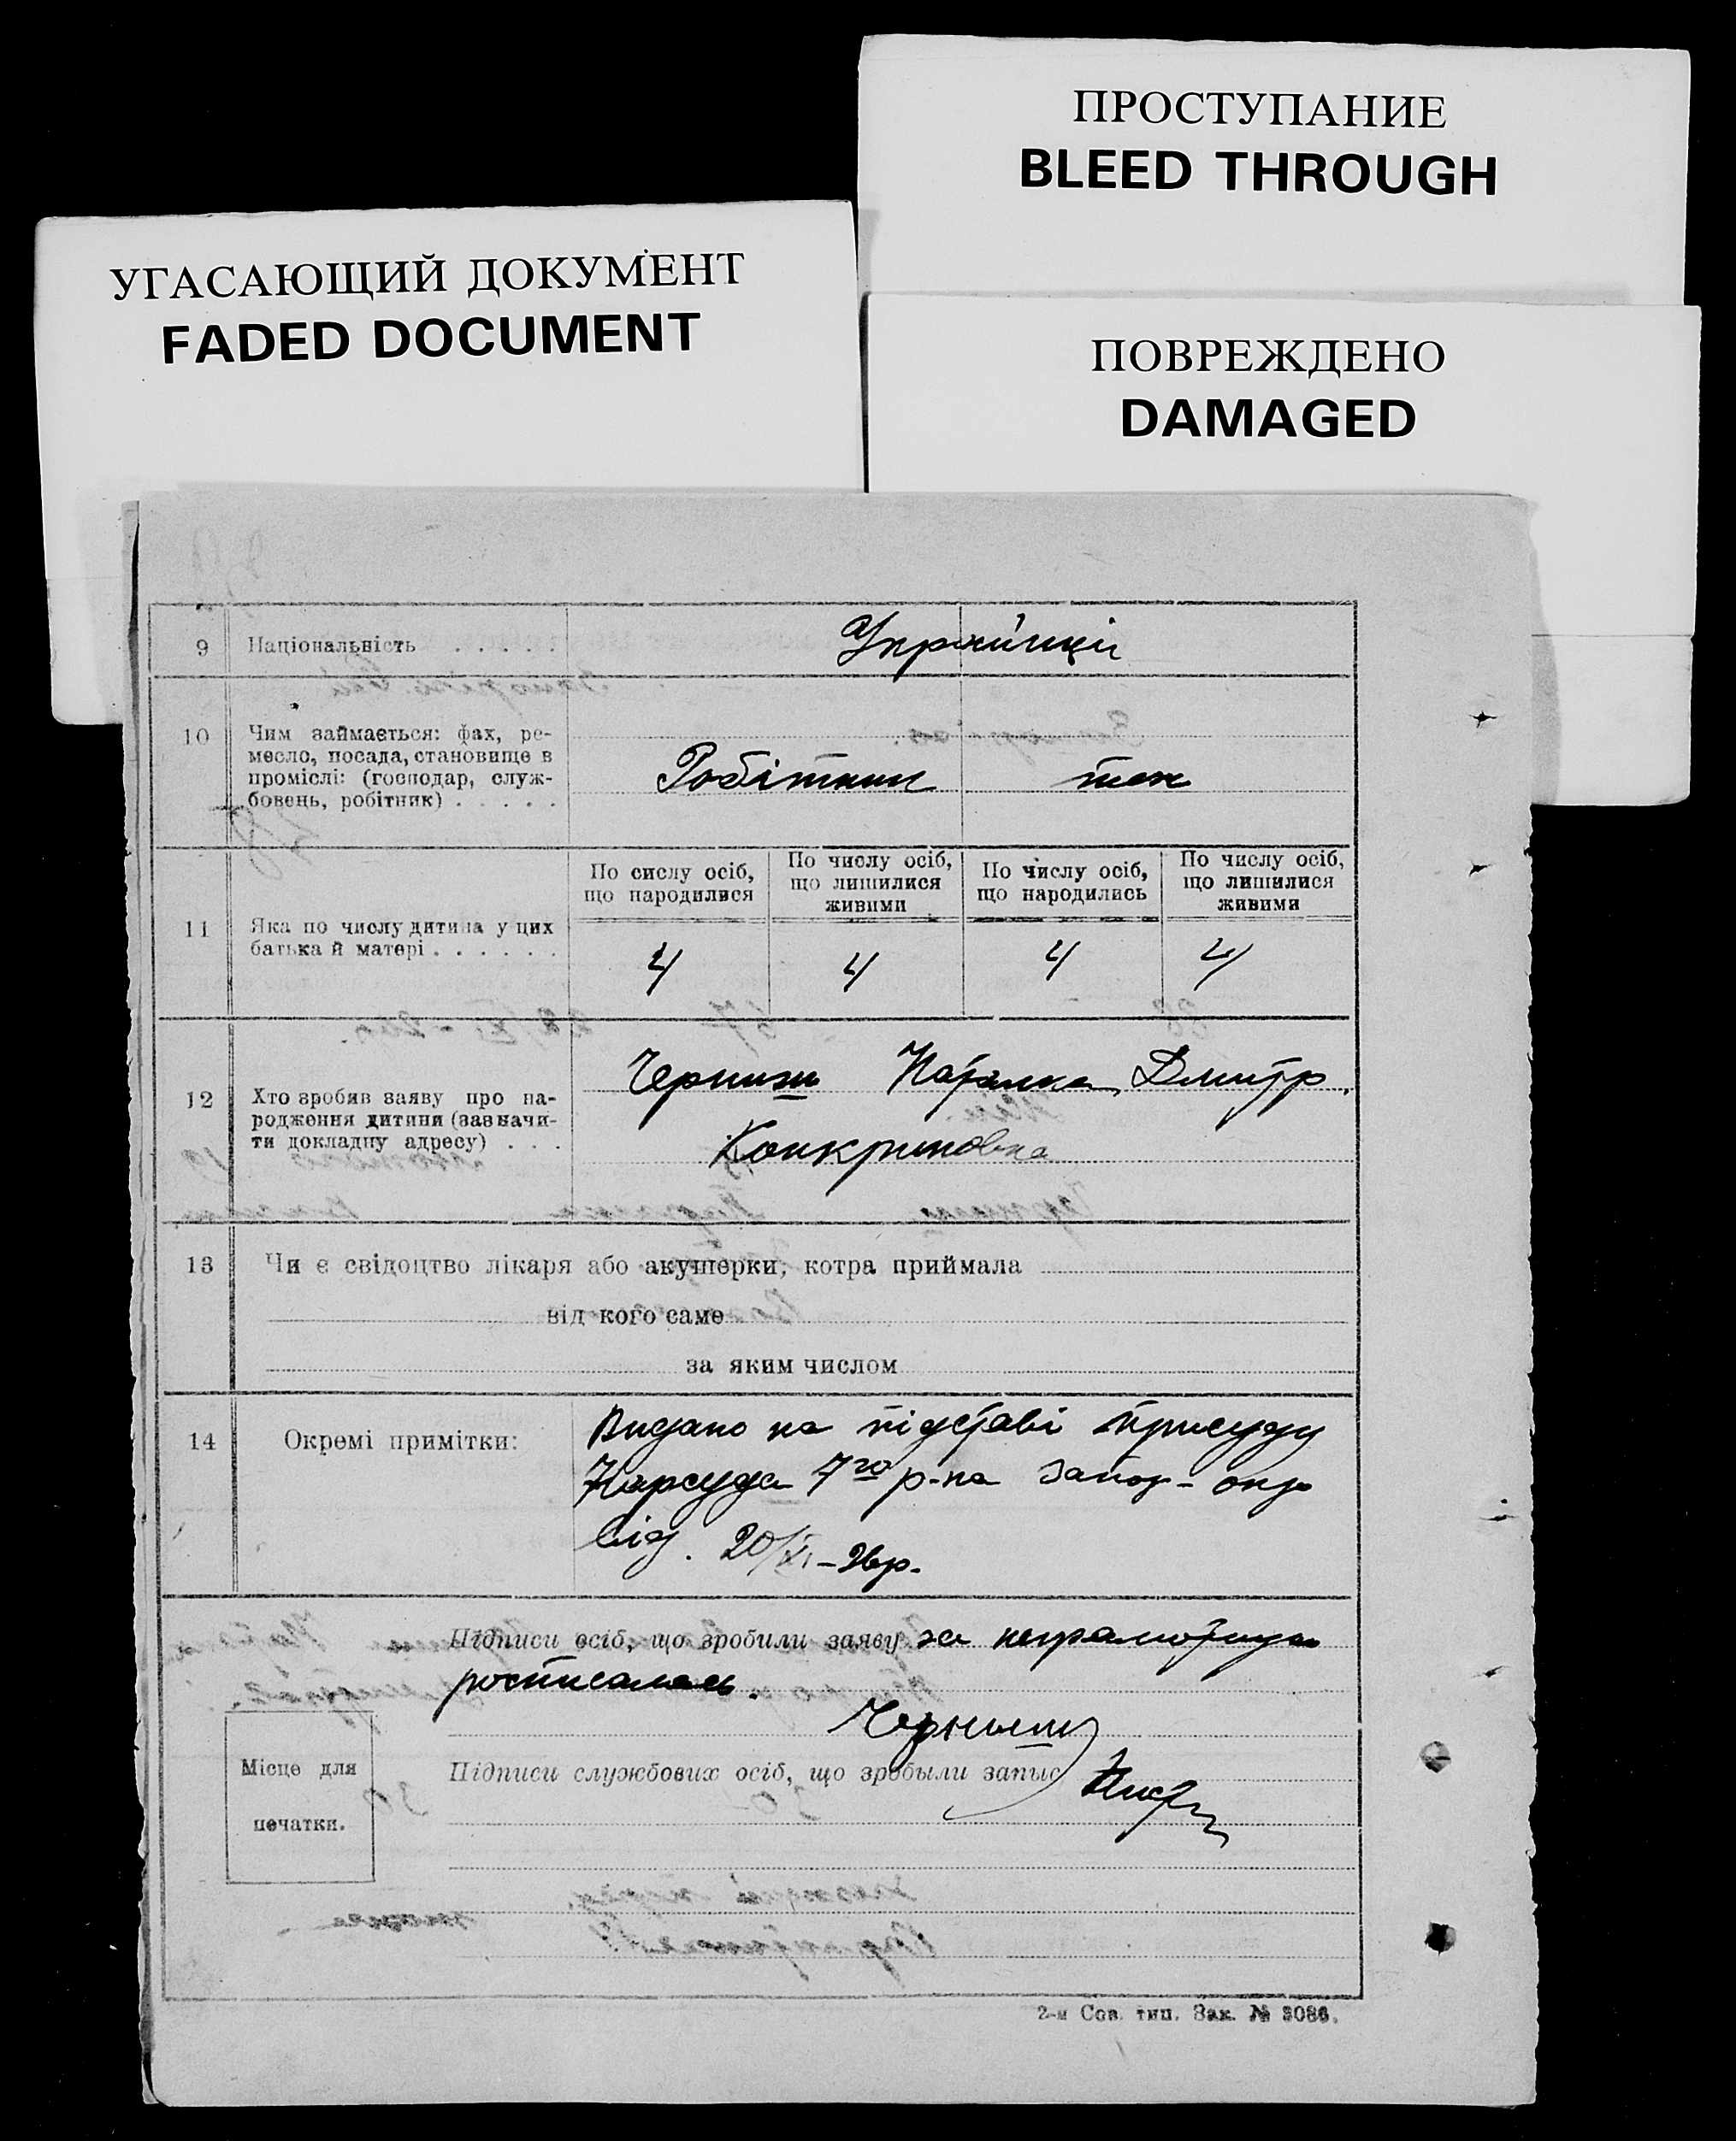 ПРОСТУПАНИЕ
BLEED THROUGH
УГАСАЮЩИЙ ДОКУМЕНТ
FADED DOCUMENT
ПОВРЕЖДЕНО
DAMAGED
9 Національність . . . . .
Українці
10 Чим займається: фах, ре-
месло, посада, становище в
промислі: (господар, служ-
бовець, робітник) . . . . .
Робітник теж
11 Яка по числу дитина у цих
батька й матері . . . . . .
По сислу осіб,
що народилися
По числу осіб,
що лишилися
живими
По числу осіб,
що народились
По числу осіб,
що лишилися
живими
4 4 4 4
12 Хто зробив заяву про на-
родження дитини (зазначи-
ти докладну адресу) . . .
Черниш Наталка Дмитр.
13 Чи є свідоцтво лікаря або акушерки, котра приймала
від кого саме
за яким числом
14 Окремі примітки:
Видано на підставі присуду
Нарсуда 7го р-на Запор- окр
від. 20/XI-26р.
Підписи осіб, що зробили заяву за неграмотную
росписалась.
Черныш
Підписи службових осіб, що зробыли запыс
Місце для
печатки.
2-я Сов. тип. Зак. № 3086.